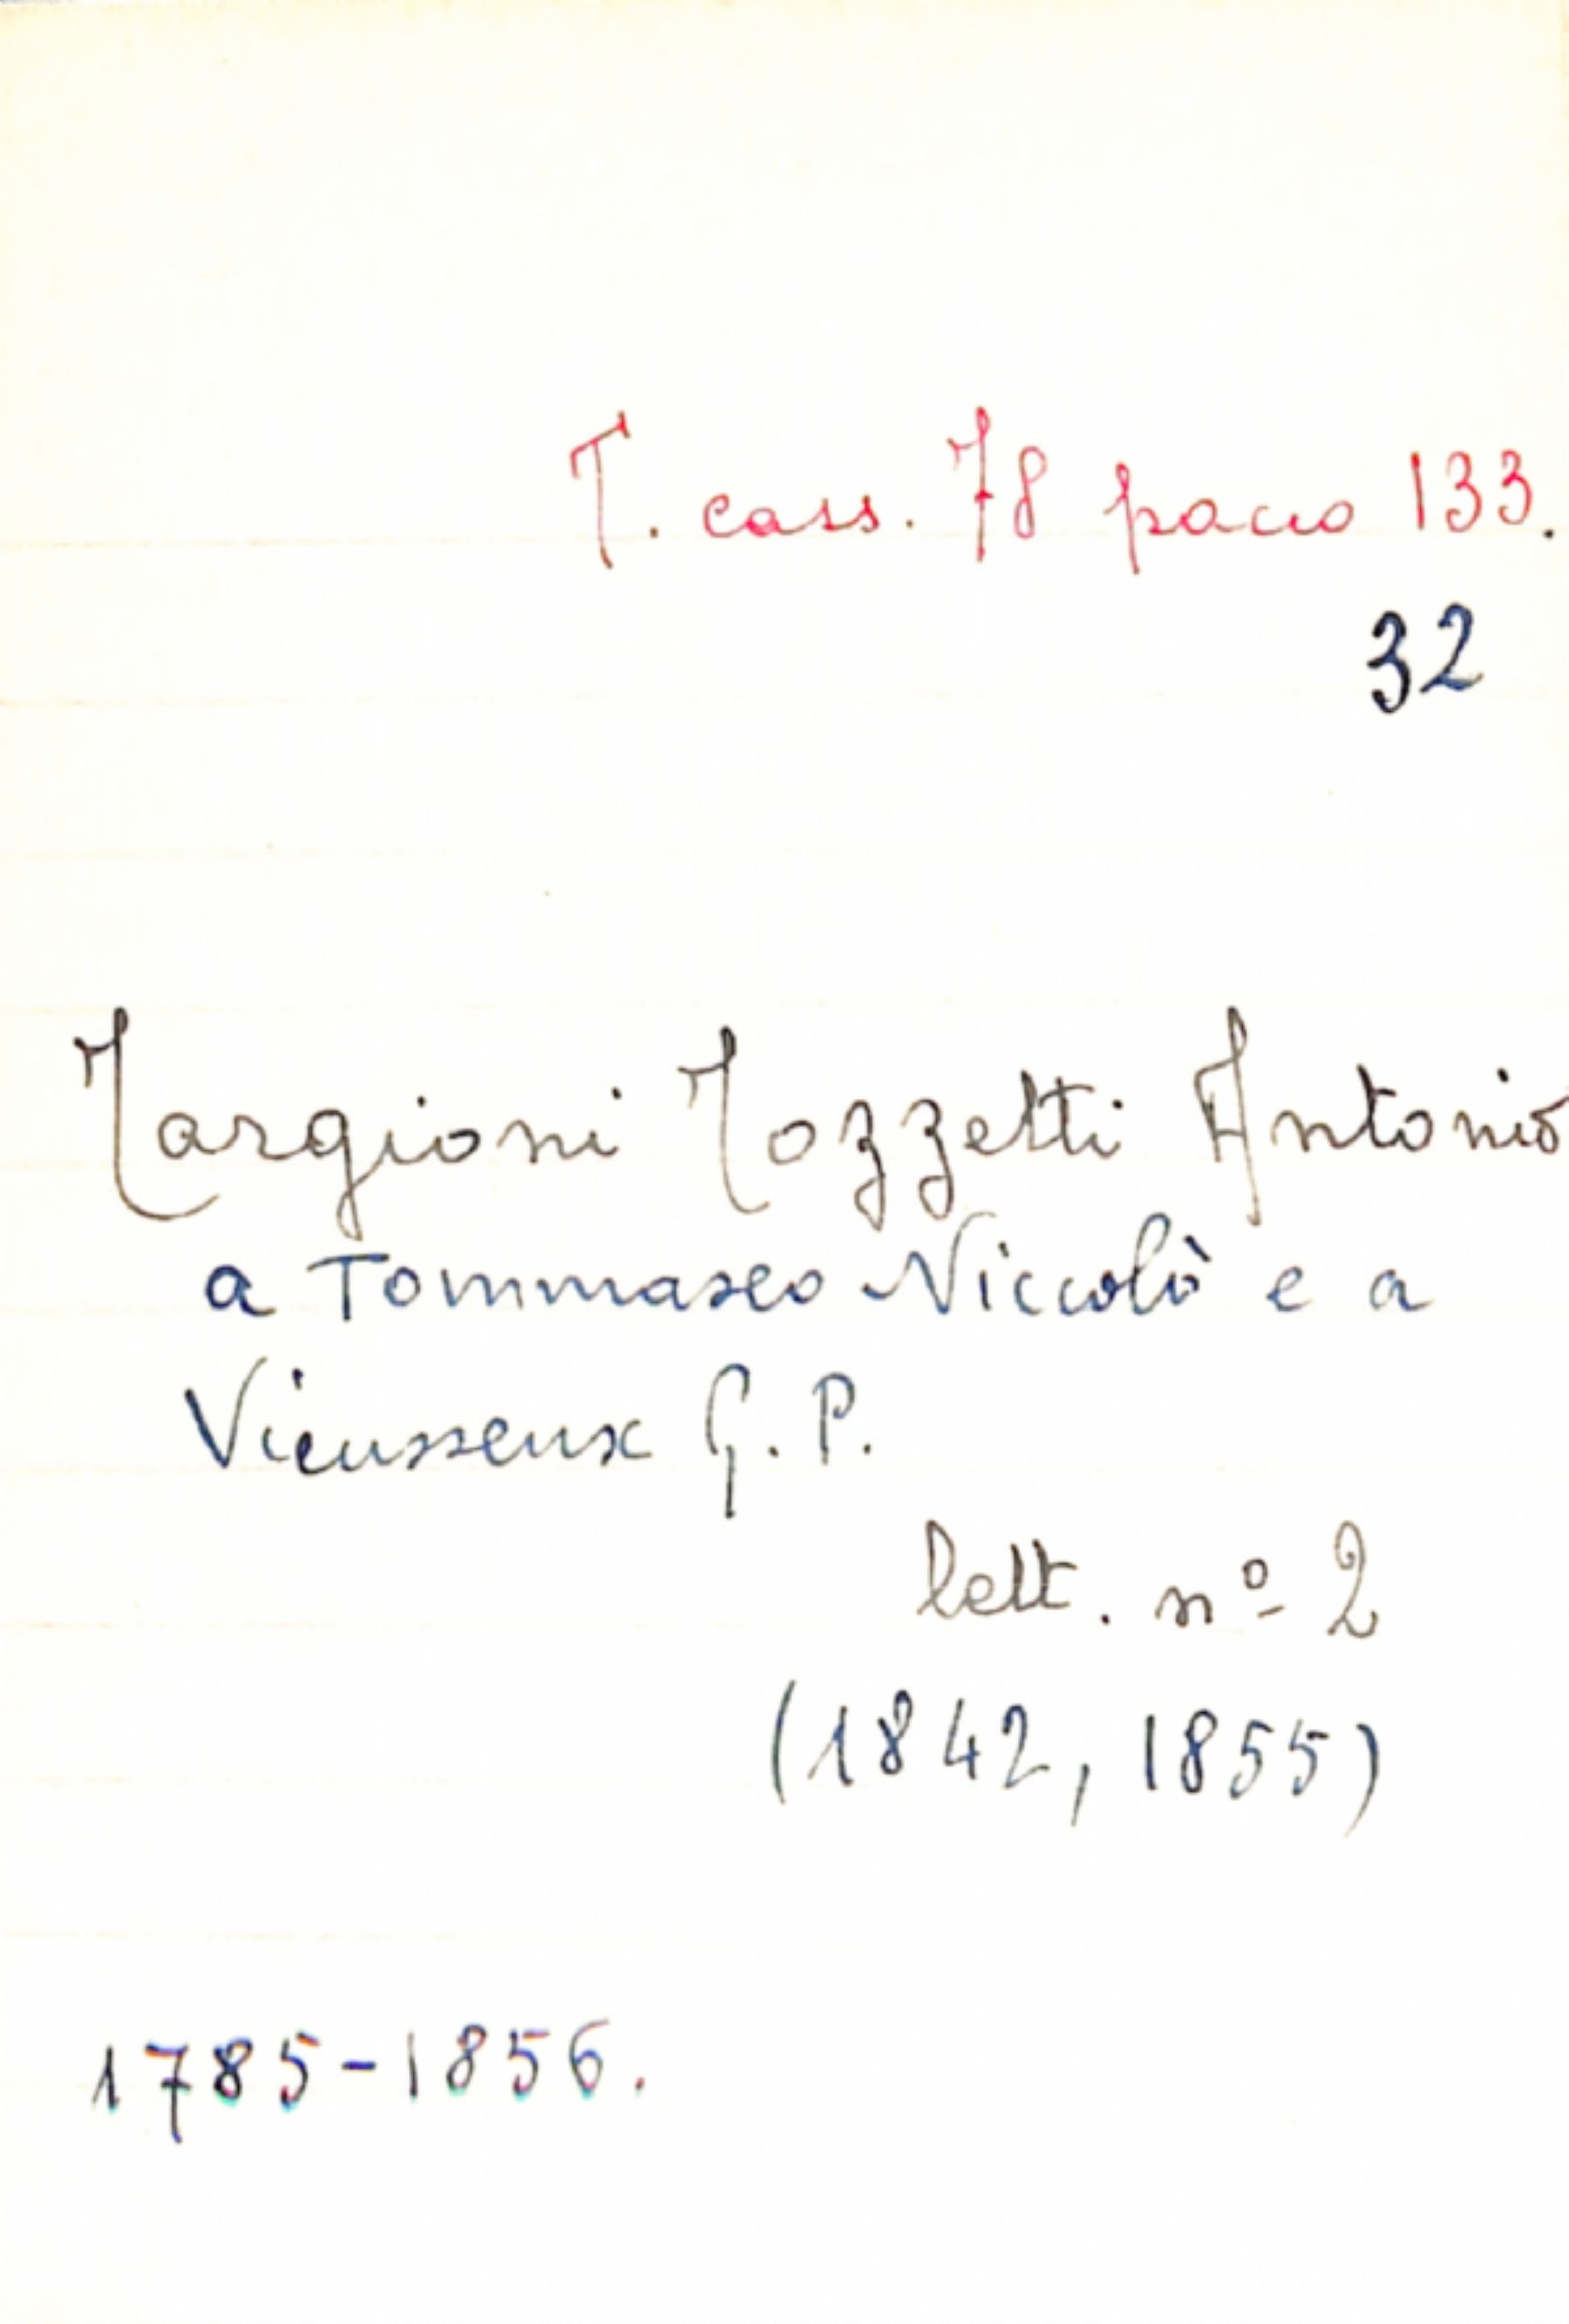 T. cass. 78 pacco 133.
32
Targioni Tozzetti Antonio
a Tommaseo Niccolò e a
Vieusseux G. P.
lett. nº 2
(1842, 1855)
1785-1856.